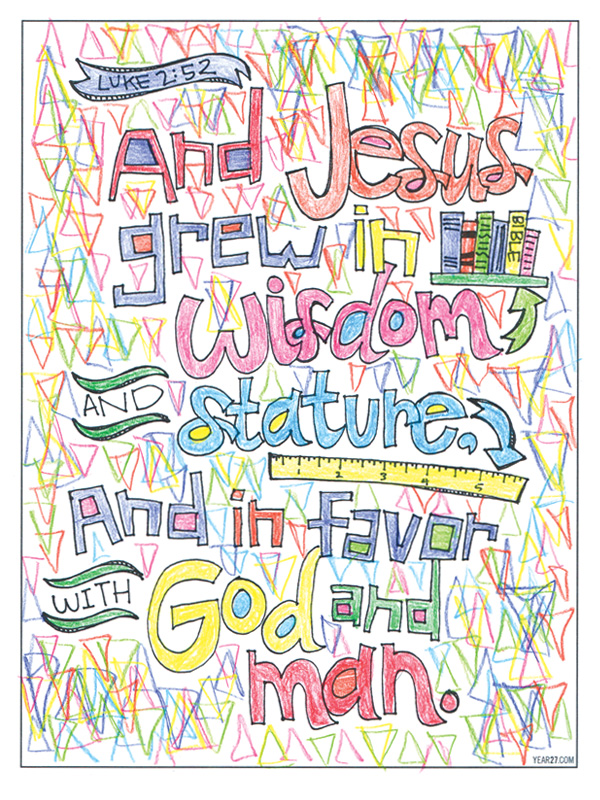 LUKE 2:52
And Jesus
grew in
BIBLE
wisdom
AND stature,
1 2 3 4 5
And in favor
WITH God and
man.
YEAR27.COM